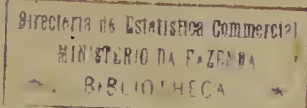 Directoria de Estatistica Commercial
MINISTERIO DA FAZENDA
BIBLIOTHECA